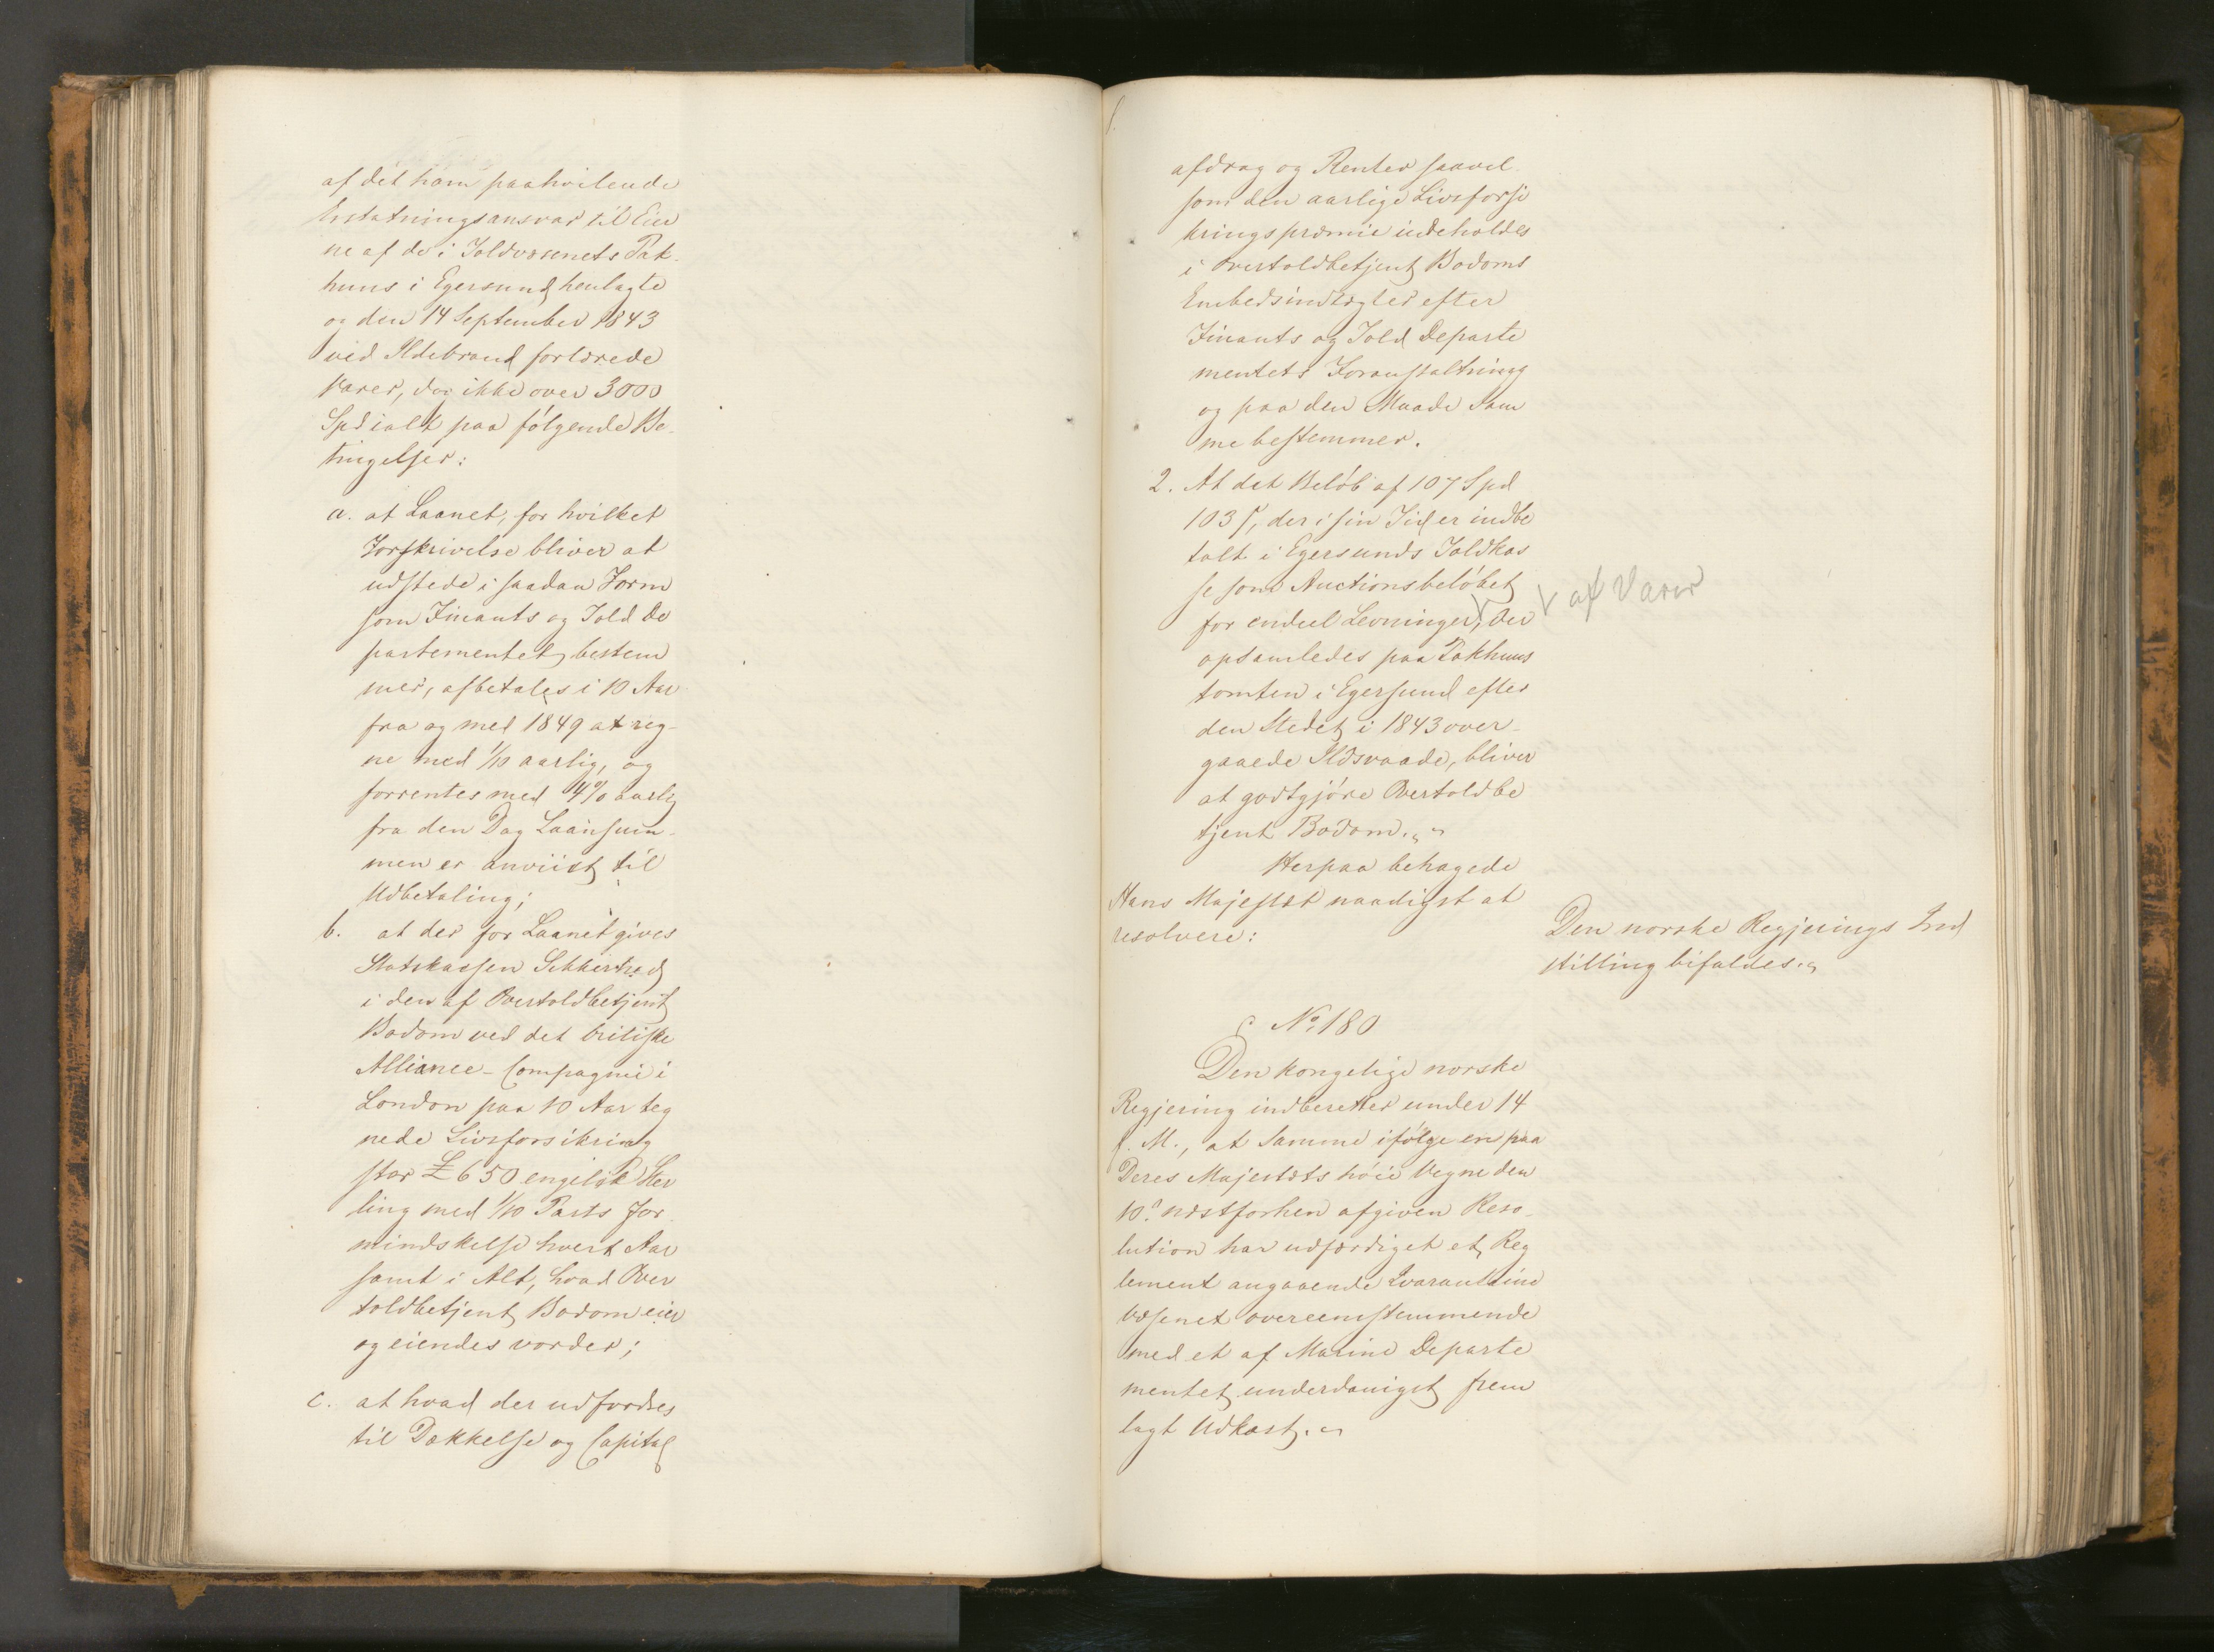 af det ham paahvilende
Erstatningsansvar til Eier
ne af de i Toldvæsenets Pak-
huus i Egersund henlagte
og den 14 September 1843
ved Ildebrand fortærede
Varer, dog ikke over 3000
Spd ialt paa følgende Be-
tingelser:
a. at Laanet, for hvilket
Forskrivelse bliver at
udstede i saadan Form
som Finants og Told De
partementet bestem
mer, afbetales i 10 Aar
fra og med 1849 at reg-
ne med 1/10 aarlig, og
forrentes med 4% aarlig
fra den Dag Laansum-
men er anviist til
Udbetaling;
b. at der for Laanet gives
Statskassen Sikkerhed
i den af Overtoldbetjent
Bodom ved det britiske
Alliance-Compagnie i
London paa 10 Aar teg
nede Livsforsikring
stor £650 engelsk Ster
ling med 1/10 Parts For
mindskelse hvert Aar
samt i Alt, hvad Over
toldbetjent Bodom eier
og eiendes vorder;
c. at hvad der udfordres
til Dækkelse og Capital
afdrag og Renter saavel
som den aarlige Livsforsi
kringspræmie indeholdes
i Overtoldbetjent Bodoms
Embedsindtægter efter
Finants og Told Departe
mentets Foranstaltning
og paa den Maade Sam
me bestemmer.
2. At det Beløb af 107 Spd
103 ſ, der i sin Tid er indbe
talt i Egersunds Toldkas
se som Auctionsbeløbet
for endeel Levninger, der
af Varer
opsamledes paa Pakhuus
tomten i Egersund efter
den Stedet i 1843 over-
gaaede Ildsvaade, bliver
at godtgjøre Overtoldbe
tjent Bodom."
Herpaa behagede
Hans Majestæt naadigst at
resolvere:
Den norske Regjerings Ind
stilling bifaldes."
No 180
Den kongelige norske
Regjering indberetter under 14
f. M., at Samme ifølge en paa
Deres Majestæts høie Vegne den
10de næstforhen afgiven Reso-
lution har udfærdiget et Reg
lement angaaende Qvarantaine
Væsenet overeenstemmende
med et af Marine Departe
mentet underdanigst frem
lagt Udkast."